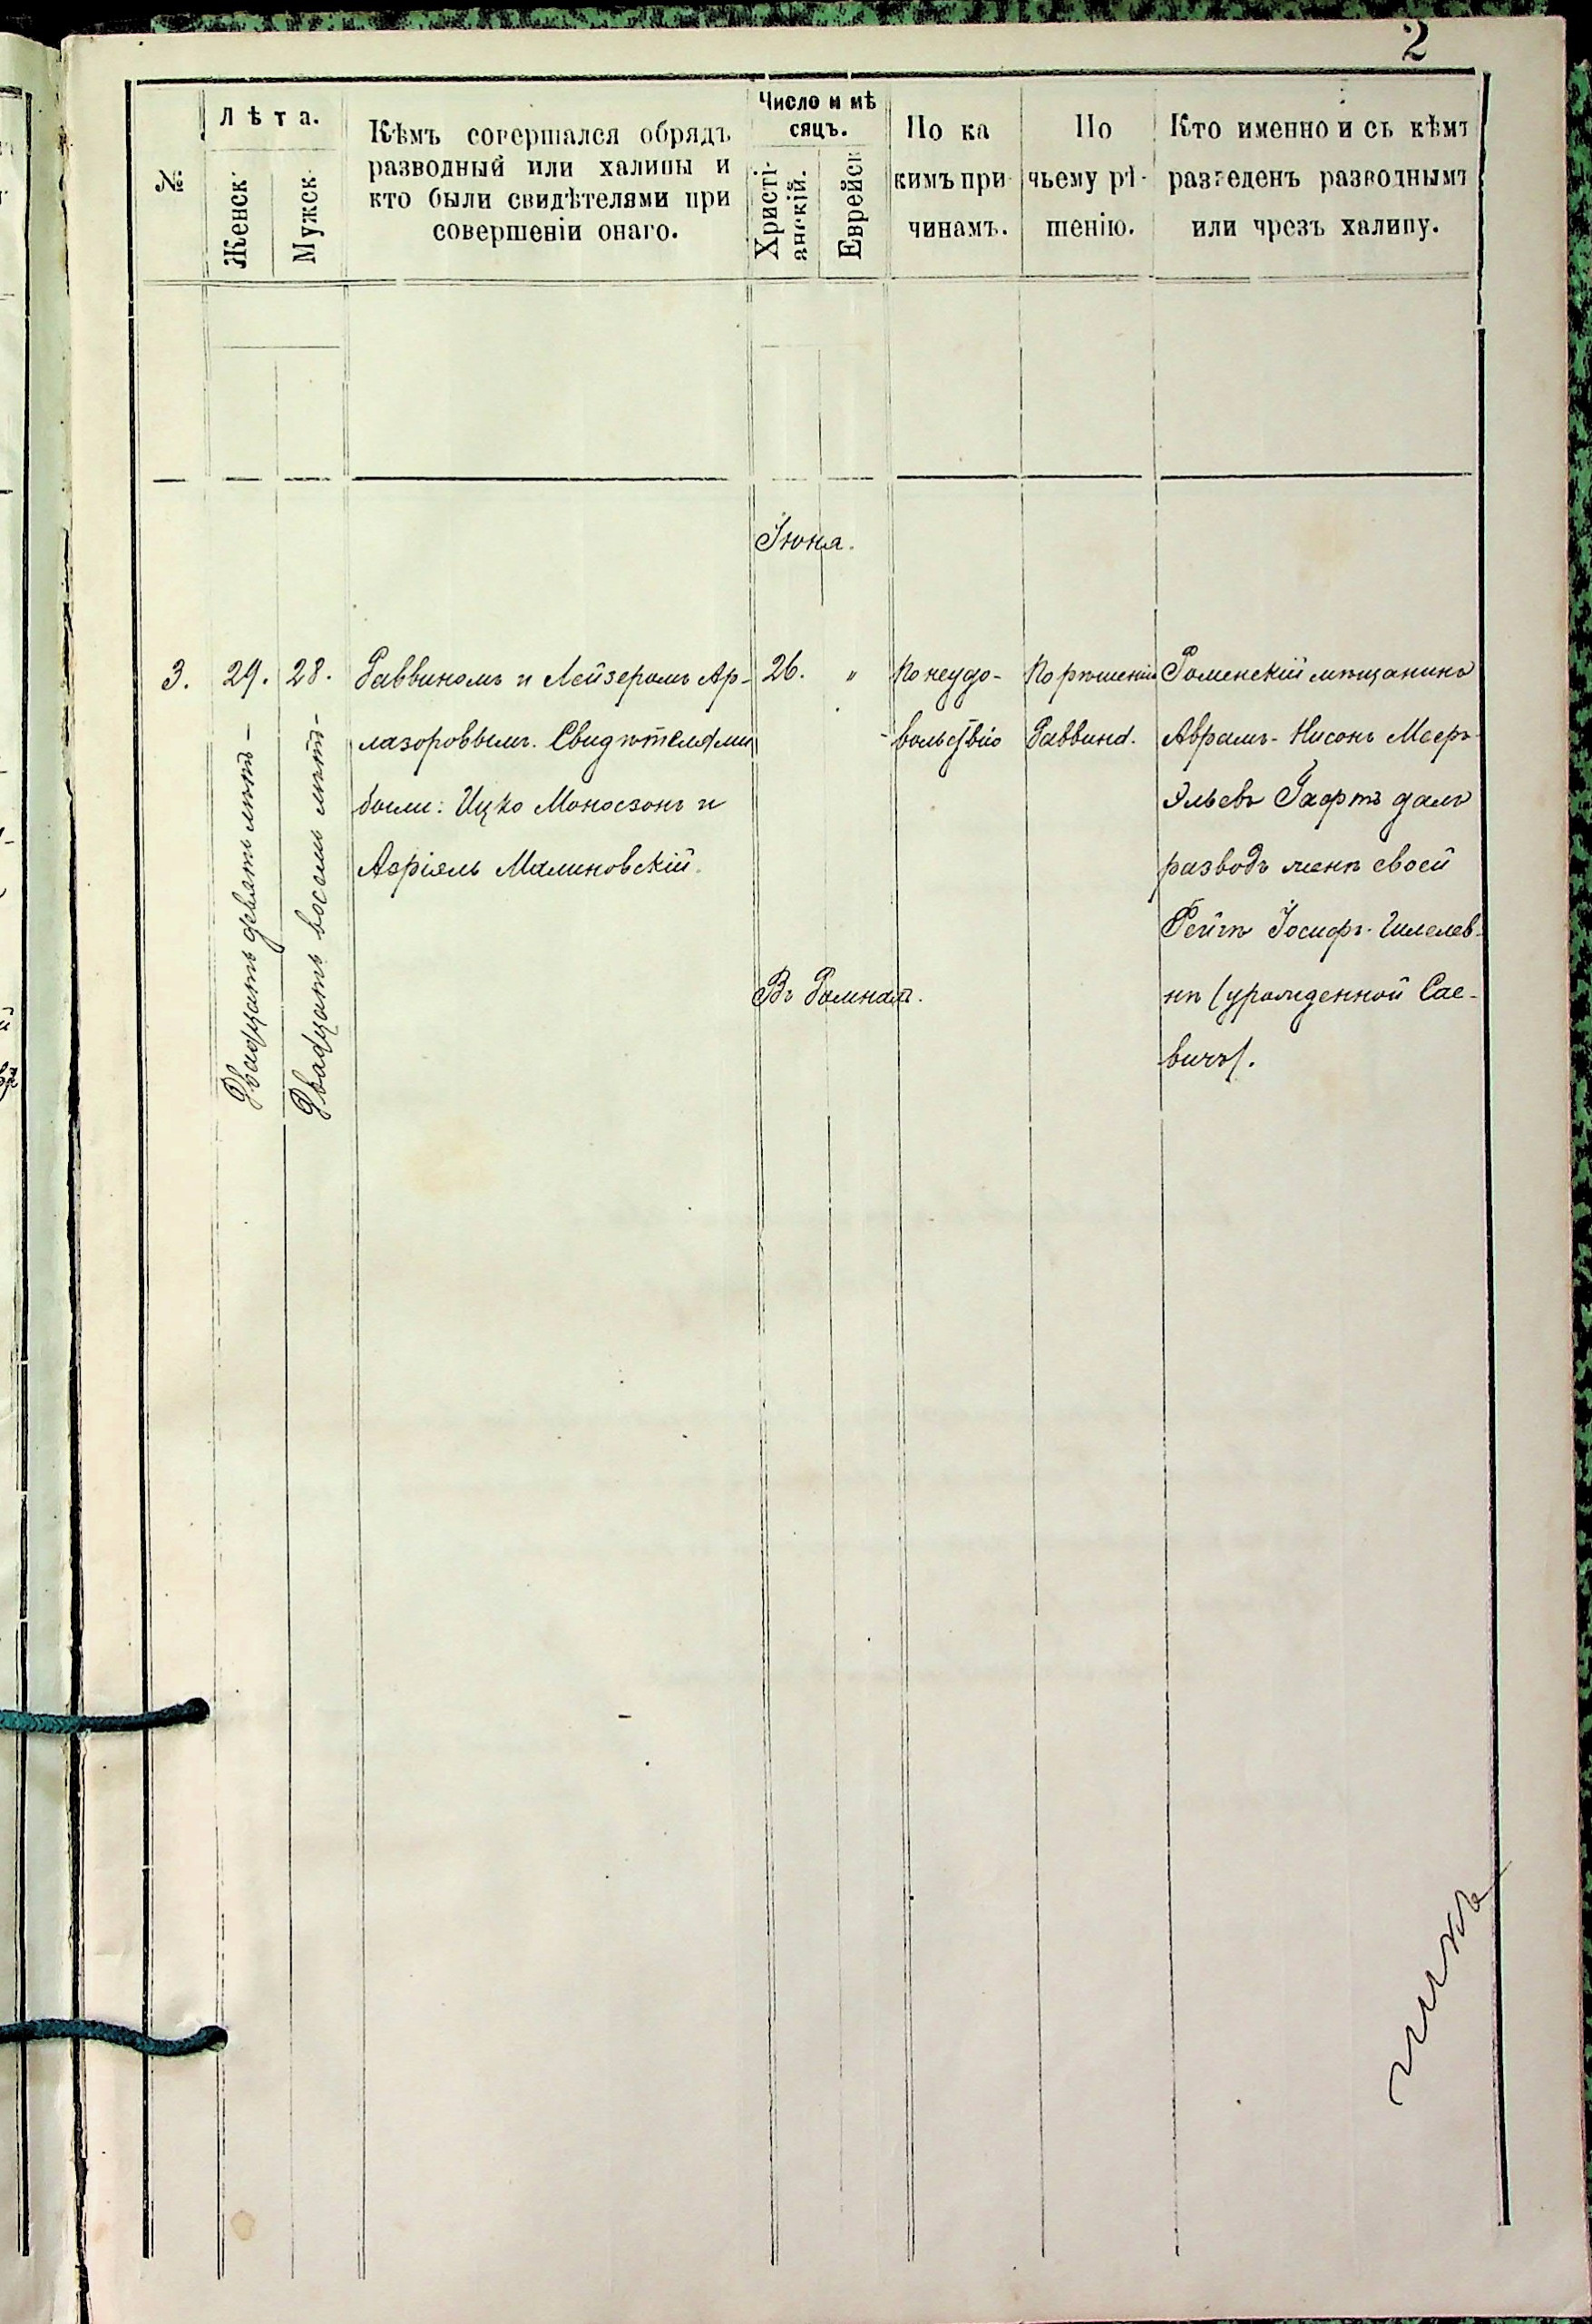 2
№
Лѣта.
Женск.
Мужск.
Кѣмъ совершался обрядъ
разводный или халицы и
кто были свидѣтелями при
совершеніи онаго.
Число и мѣ
сяцъ.
Христі-
анскій.
Еврейск
По ка
кимъ при-
чинамъ.
По
чьему рѣ-
шенію.
Кто именно и съ кѣмъ
разведенъ разводнымъ
или чрезъ халицу.
Іюня.
3.
29.
Двадцать девять лѣтъ –
28.
Двадцать восемь лѣтъ –
Раввиномъ и Лейзеромъ Ар-
лазоровымъ. Свидѣтелями
были: Ицко Моносзонъ и
Азріель Малиновскій.
26. "
Въ Ромнахъ.
По неудо-
-вольствію
По рѣшенію
Раввина.
Роменскій мѣщанинъ
Аврамъ-Нисонъ Мееръ-
Эльевъ Гафтъ далъ
разводъ женѣ своей
Рейзѣ Іосифъ-Гилелев-
нѣ (урожденной Сае-
вичъ).